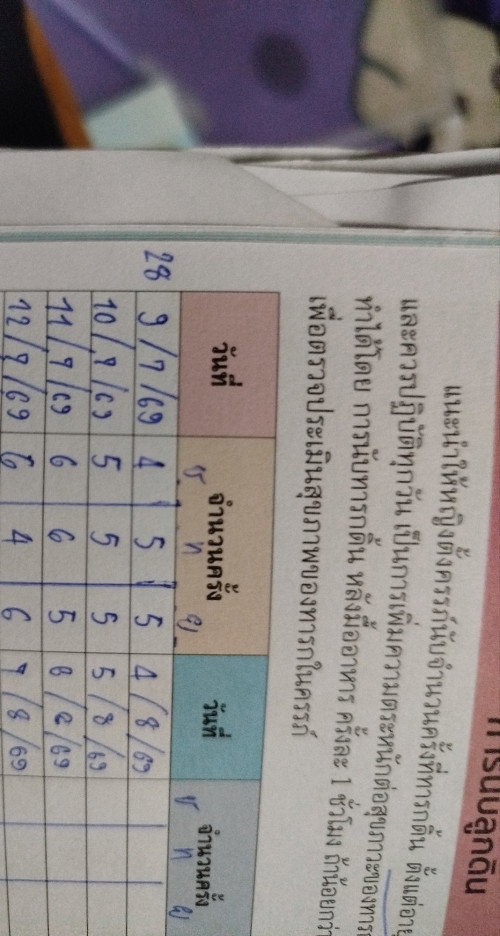 การนับลูกดิ้น
แนะนำให้หญิงตั้งครรภ์นับจำนวนครั้งที่ทารกดิ้น ตั้งแต่อายุ
และควรปฏิบัติทุกวัน เป็นการเพิ่มความตระหนักต่อสุขภาวะของทารก
ทำได้โดย การนับทารกดิ้น หลังมื้ออาหาร ครั้งละ 1 ชั่วโมง ถ้าน้อยกว่า
เพื่อตรวจประเมินสุขภาพของทารกในครรภ์
วันที่ จำนวนครั้ง วันที่ จำนวนครั้ง
ช ท ย ช ท ย
28 9/7/69 4 5 5 4/8/69
10/7/69 5 5 5 5/8/69
11/7/69 6 6 5 6/8/69
12/7/69 6 4 6 7/8/69